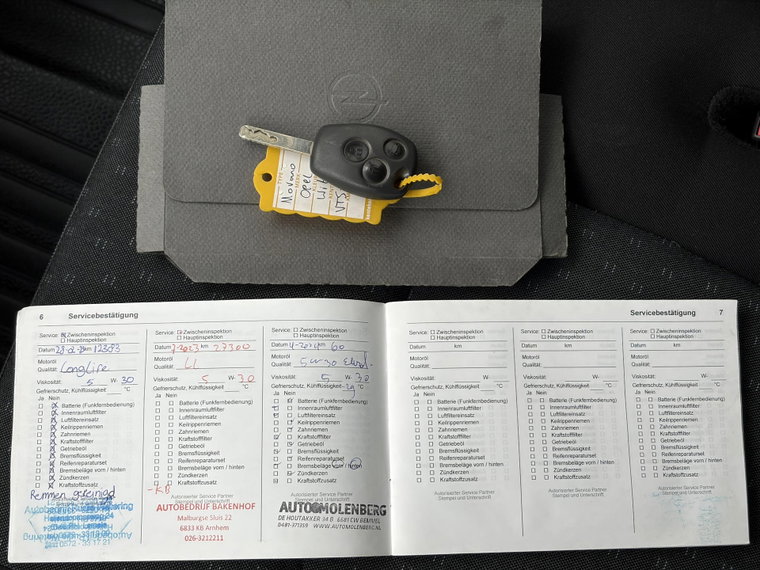 Movano
Opel
6 Servicebestätigung
Service: Zwischeninspektion
Hauptinspektion
Datum km 12383
Motoröl
Qualität: Longlife
Viskosität: 5 W- 30
Gefrierschutz, Kühlflüssigkeit °C
Ja Nein
Batterie (Funkfernbedienung)
Innenraumluftfilter
Luftfiltereinsatz
Keilrippenriemen
Zahnriemen
Kraftstofffilter
Getriebeöl
Bremsflüssigkeit
Reifenreparaturset
Bremsbeläge vorn / hinten
Zündkerzen
Kraftstoffzusatz
Remmen gereinigd
0572 - 33 17 21
Service: Zwischeninspektion
Hauptinspektion
Datum 7-2023 km 27300
Motoröl
Qualität: LL
Viskosität: 5 W- 30
Gefrierschutz, Kühlflüssigkeit °C
Ja Nein
Batterie (Funkfernbedienung)
Innenraumluftfilter
Luftfiltereinsatz
Keilrippenriemen
Zahnriemen
Kraftstofffilter
Getriebeöl
Bremsflüssigkeit
Reifenreparaturset
Bremsbeläge vorn / hinten
Zündkerzen
Kraftstoffzusatz
Autorisierter Service Partner
Stempel und Unterschrift
AUTOBEDRIJF BAKENHOF
Malburgse Sluis 22
6833 KB Arnhem
026-3212211
Service: Zwischeninspektion
Hauptinspektion
Datum km 60
Motoröl
Qualität: 5W-30
Viskosität: 5 W- 30
Gefrierschutz, Kühlflüssigkeit °C
Ja Nein
Batterie (Funkfernbedienung)
Innenraumluftfilter
Luftfiltereinsatz
Keilrippenriemen
Zahnriemen
Kraftstofffilter
Getriebeöl
Bremsflüssigkeit
Reifenreparaturset
Bremsbeläge vorn / hinten
Zündkerzen
Kraftstoffzusatz
Autorisierter Service Partner
Stempel und Unterschrift
AUTOMOLENBERG
DE HOUTAKKER 34 B 6681 CW BEMMEL
0481-371359 WWW.AUTOMOLENBERG.NL
Servicebestätigung 7
Service: Zwischeninspektion
Hauptinspektion
Datum km
Motoröl
Qualität:
Viskosität: W-
Gefrierschutz, Kühlflüssigkeit °C
Ja Nein
Batterie (Funkfernbedienung)
Innenraumluftfilter
Luftfiltereinsatz
Keilrippenriemen
Zahnriemen
Kraftstofffilter
Getriebeöl
Bremsflüssigkeit
Reifenreparaturset
Bremsbeläge vorn / hinten
Zündkerzen
Kraftstoffzusatz
Autorisierter Service Partner
Stempel und Unterschrift
Service: Zwischeninspektion
Hauptinspektion
Datum km
Motoröl
Qualität:
Viskosität: W-
Gefrierschutz, Kühlflüssigkeit °C
Ja Nein
Batterie (Funkfernbedienung)
Innenraumluftfilter
Luftfiltereinsatz
Keilrippenriemen
Zahnriemen
Kraftstofffilter
Getriebeöl
Bremsflüssigkeit
Reifenreparaturset
Bremsbeläge vorn / hinten
Zündkerzen
Kraftstoffzusatz
Autorisierter Service Partner
Stempel und Unterschrift
Service: Zwischeninspektion
Hauptinspektion
Datum km
Motoröl
Qualität:
Viskosität: W-
Gefrierschutz, Kühlflüssigkeit °C
Ja Nein
Batterie (Funkfernbedienung)
Innenraumluftfilter
Luftfiltereinsatz
Keilrippenriemen
Zahnriemen
Kraftstofffilter
Getriebeöl
Bremsflüssigkeit
Reifenreparaturset
Bremsbeläge vorn / hinten
Zündkerzen
Kraftstoffzusatz
Autorisierter Service Partner
Stempel und Unterschrift